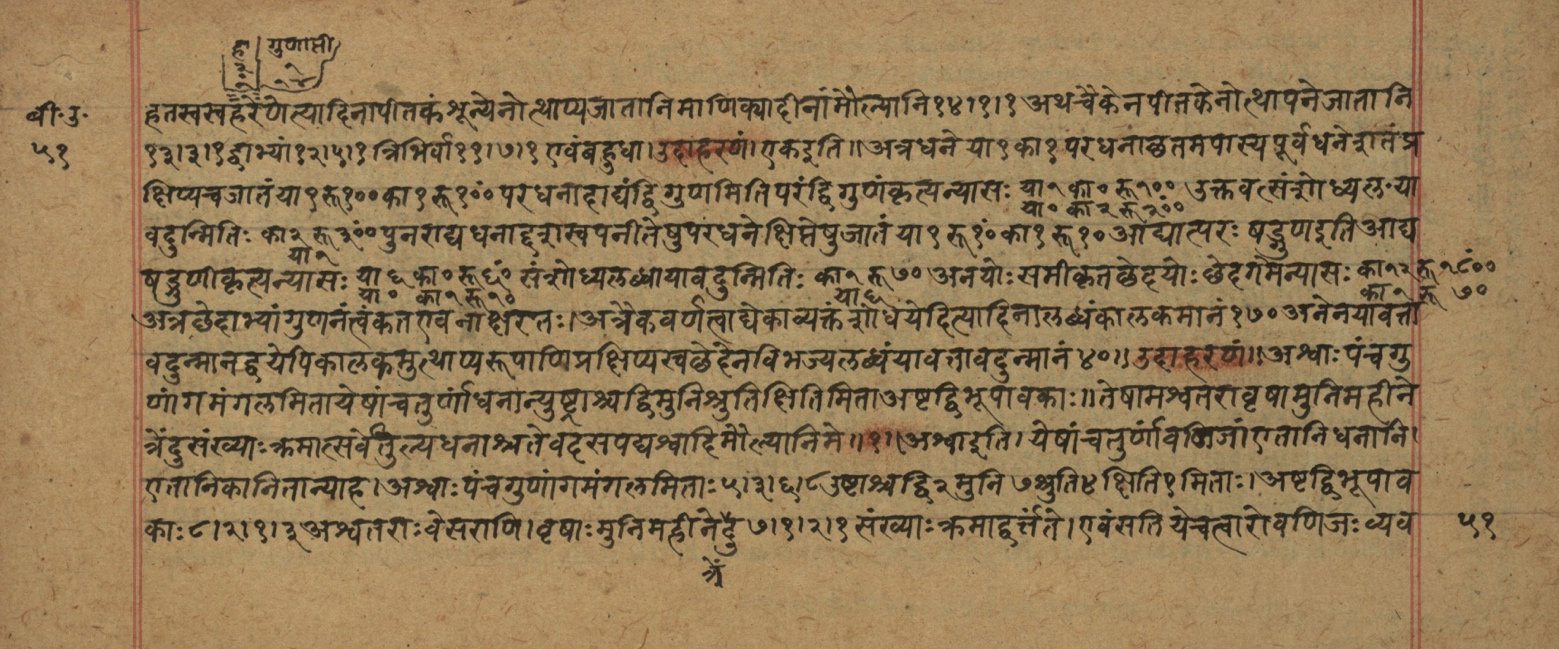 हा गुणाप्ती
बी॰उ॰
५१
हृतस्वस्वहरेणेत्यादिनापीतकं शून्येनोत्थाप्यजातानिमाणिक्यादीनांमौल्यानि१४।१।१ अथचैकेनपीतकेनोत्थापनेजातानि
१३।३।१द्वाभ्यां१२।५।१त्रिभिर्वा११।७।१एवंबहुधा।उदाहरणं।एकइति॥अत्रधनेया१का१परधनाछतमपास्यपूर्वधनेशतंप्र
क्षिप्यचजातंया१रू१००का१रू१०ं०परधनादाद्यंद्विगुणमितिपरंद्विगुणंकृत्यन्यासः या१का०रू१०० उक्तवत्संशोध्यलब्धया
या०का२रू२०ं०
वदुन्मितिः का२रू३०ं० पुनराद्यधनाद्दशस्वपनीतेषुपरधनेक्षिप्तेषुजातंया१रू१०ंका१रू१०आद्यात्परःषड्गुणइतिआद्य
या१
षड्गुणीकृत्यन्यासः या६का०रू६०ं संशोध्यलब्धायावदुन्मितिः का१रू७० अनयोःसमीकृतछेदयोःछेदगमेन्यासः का१२रू१८०ं०
या०का१रू१० या६ का१रू७०
अत्रछेदाभ्यांगुणनंत्वंकतएवनाक्षरतः।अत्रैकवर्णत्वाद्येकाव्यक्तंशोधयेदित्यादिनालब्धंकालकमानं१७०अनेनयावत्ता
वदुन्मानद्वयेपिकालकमुत्थाप्यरूपाणिप्रक्षिप्यस्वछेदेनविभज्यलब्धंयावत्तावदुन्मानं४०॥उदाहरणं॥अश्वाःपंचगु
णांगमंगलमितायेषांचतुर्णांधनान्युष्ट्राश्चद्विमुनिश्रुतिक्षितिमिताअष्टद्विभूपावकाः॥तेषामश्वतरावृषामुनिमहीने
त्रेंदुसंख्याःक्रमात्सर्वेतुल्यधनाश्चतेवदसपद्यश्वादिमौल्यानिमे॥१॥अश्वाइति।येषांचतुर्णांवणिजांएतानिधनानि।
एतानिकानितान्याह।अश्वाःपंचगुणांगमंगलमिताः५।३।६।८उष्ट्राश्चद्वि२मुनि७श्रुति४क्षिति१मिताः।अष्टद्विभूपाव
काः८।२।१।३अश्वतराःवेसराणि।वृषाःमुनिमहीनेदुं७।१।२।१संख्याःक्रमाद्वर्त्तंते।एवंसतियेचत्वारोवणिजःव्यव
५१
त्रें